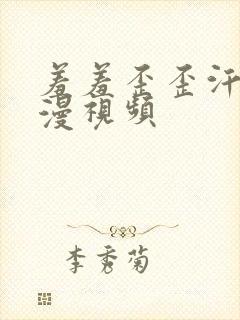 羞羞歪歪汗
漫視頻
李秀菊